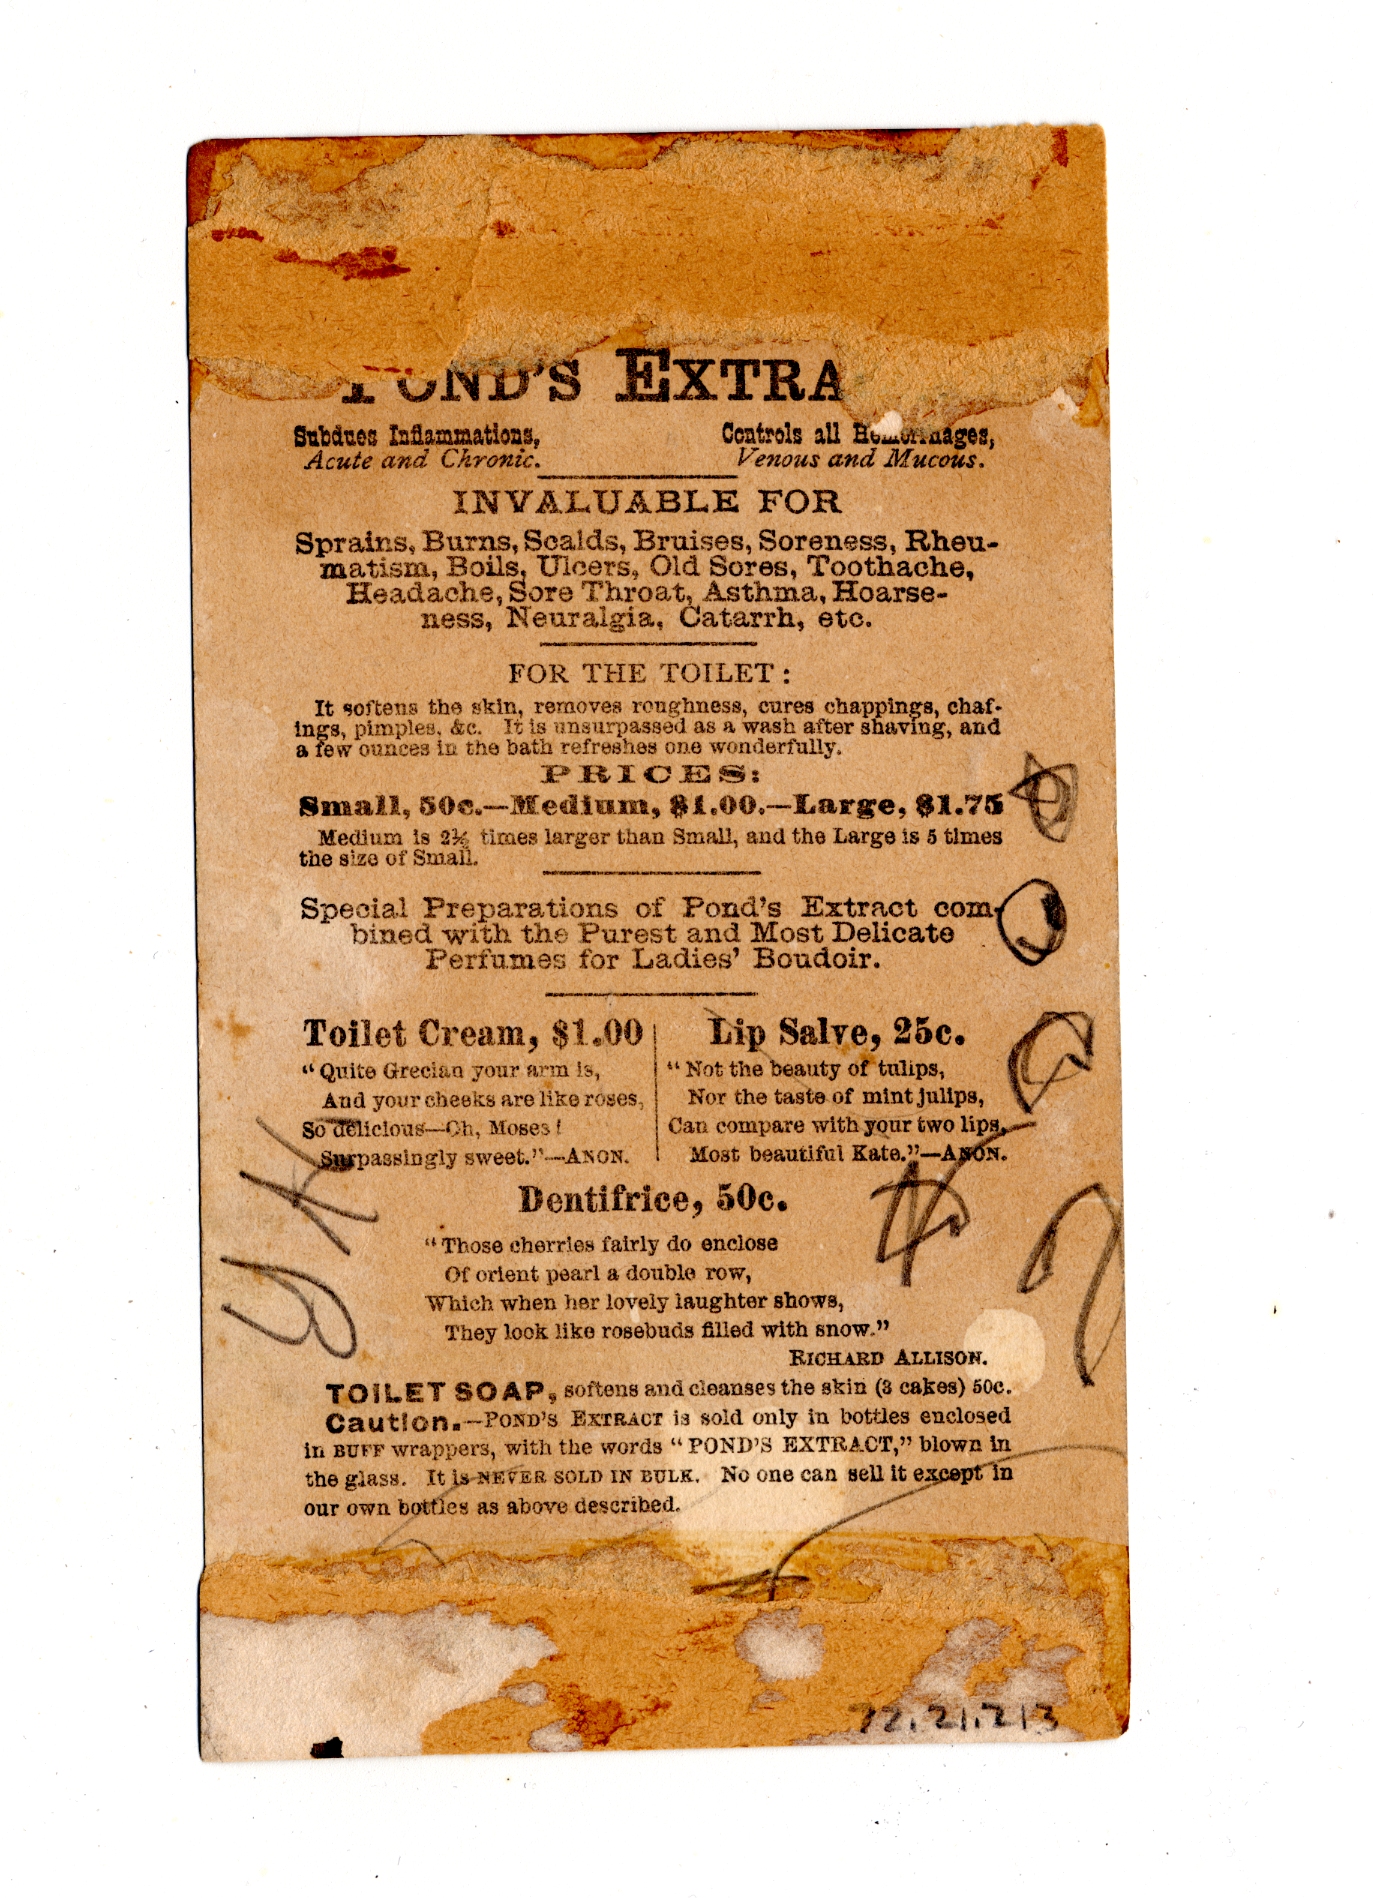 POND'S EXTRA
Subdues Inflammations,
Acute and Chronic.
Controls all Hemorrhages,
Venous and Mucous.
INVALUABLE FOR
Sprains, Burns, Scalds, Bruises, Soreness, Rheu-
matism, Boils, Ulcers, Old Sores, Toothache,
Headache, Sore Throat, Asthma, Hoarse-
ness, Neuralgia, Catarrh, etc.
FOR THE TOILET:
It softens the skin, removes roughness, cures chappings, chaf-
ings, pimples, &c. It is unsurpassed as a wash after shaving, and
a few ounces in the bath refreshes one wonderfully.
PRICES:
Small, 50c.—Medium, $1.00.—Large, $1.75
Medium is 2½ times larger than Small, and the Large is 5 times
the size of Small.
Special Preparations of Pond's Extract com-
bined with the Purest and Most Delicate
Perfumes for Ladies' Boudoir.
Toilet Cream, $1.00
"Quite Grecian your arm is,
And your cheeks are like roses,
So delicious—Oh, Moses!
Surpassingly sweet."—ANON.
Lip Salve, 25c.
"Not the beauty of tulips,
Nor the taste of mint julips,
Can compare with your two lips,
Most beautiful Kate."—ANON.
Dentifrice, 50c.
"Those cherries fairly do enclose
Of orient pearl a double row,
Which when her lovely laughter shows,
They look like rosebuds filled with snow."
RICHARD ALLISON.
TOILET SOAP, softens and cleanses the skin (3 cakes) 50c.
Caution.—POND'S EXTRACT is sold only in bottles enclosed
in BUFF wrappers, with the words "POND'S EXTRACT," blown in
the glass. It is NEVER SOLD IN BULK. No one can sell it except in
our own bottles as above described.
72.21.213